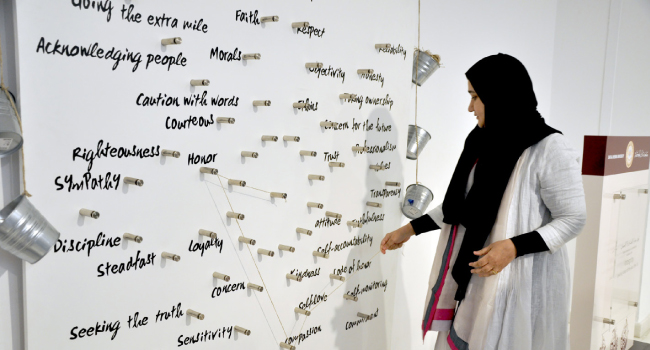 Going the extra mile
Faith
Respect
Acknowledging people
Morals
Reliability
Objectivity
Honesty
Caution with words
Taking ownership
Courteous
Concern for the future
Righteousness
Honor
Trust
Professionalism
Sympathy
Transparency
attitude
Faithfulness
Discipline
Loyalty
Self-accountability
Steadfast
Kindness
Code of honor
Concern
Self-monitoring
Selflove
Seeking the truth
Sensitivity
Compassion
Commitment